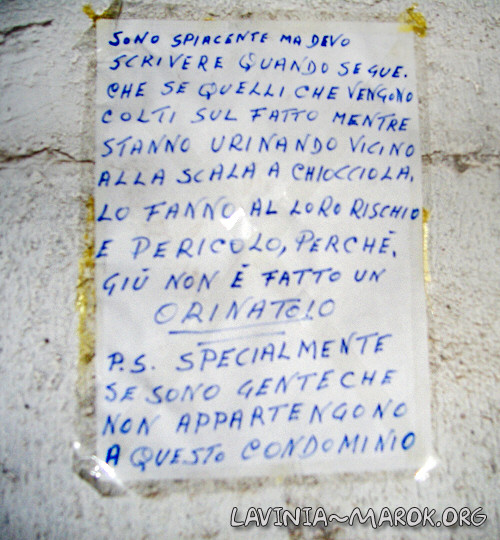 SONO SPIACENTE MA DEVO
SCRIVERE QUANDO SEGUE.
CHE SE QUELLI CHE VENGONO
COLTI SUL FATTO MENTRE
STANNO URINANDO VICINO
ALLA SCALA A CHIOCCIOLA,
LO FANNO AL LORO RISCHIO
E PERICOLO, PERCHÈ,
GIÙ NON È FATTO UN
ORINATOIO
P.S. SPECIALMENTE
SE SONO GENTE CHE
NON APPARTENGONO
A QUESTO CONDOMINIO
LAVINIA~MAROK.ORG